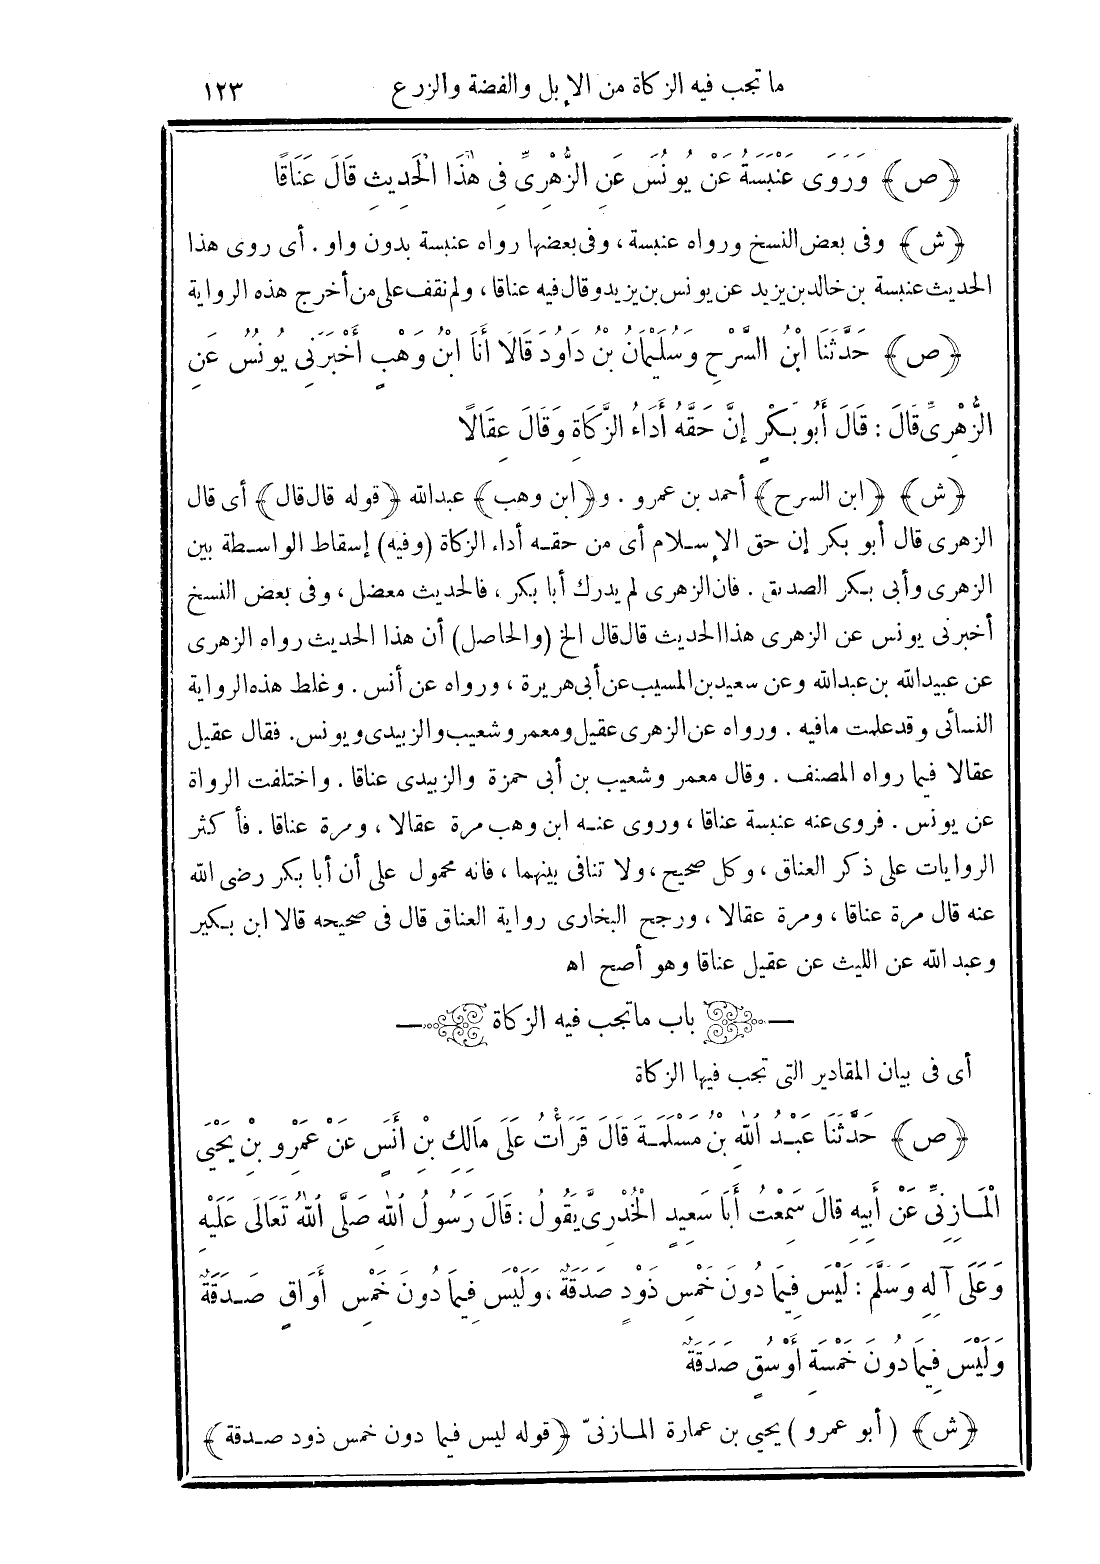 ما تجب فيه الزكاة من الإبل والفضة والزرع ١٢٣
﴿ص﴾ وَرَوَى عَنْبَسَةُ عَنْ يُونُسَ عَنِ الزُّهْرِىِّ فِى هٰذَا الْحَدِيثِ قَالَ عَنَاقًا
﴿ش﴾ وفى بعض النسخ ورواه عنبسة ، وفى بعضها رواه عنبسة بدون واو . أى روى هذا
الحديث عنبسة بن خالد بن يزيد عن يونس بن يزيد وقال فيه عناقا ، ولم نقف على من أخرج هذه الرواية
﴿ص﴾ حَدَّثَنَا ابْنُ السَّرْحِ وَسُلَيْمَانُ بْنُ دَاوُدَ قَالَا أَنَا ابْنُ وَهْبٍ أَخْبَرَنِى يُونُسُ عَنِ
الزُّهْرِىِّ قَالَ : قَالَ أَبُو بَكْرٍ إِنَّ حَقَّهُ أَدَاءُ الزَّكَاةِ وَقَالَ عِقَالًا
﴿ش﴾ ﴿ابن السرح﴾ أحمد بن عمرو . و﴿ابن وهب﴾ عبدالله ﴿قوله قال قال﴾ أى قال
الزهرى قال أبو بكر إن حق الإسلام أى من حقه أداء الزكاة (وفيه) إسقاط الواسطة بين
الزهرى وأبى بكر الصديق . فان الزهرى لم يدرك أبا بكر ، فالحديث معضل ، وفى بعض النسخ
أخبرنى يونس عن الزهرى هذا الحديث قال قال الخ (والحاصل) أن هذا الحديث رواه الزهرى
عن عبيدالله بن عبدالله وعن سعيد بن المسيب عن أبى هريرة ، ورواه عن أنس . وغلط هذه الرواية
النسائى وقد علمت مافيه . ورواه عن الزهرى عقيل ومعمر وشعيب والزبيدى ويونس. فقال عقيل
عقالا فيما رواه المصنف . وقال معمر وشعيب بن أبى حمزة والزبيدى عناقا . واختلفت الرواة
عن يونس . فروى عنه عنبسة عناقا ، وروى عنه ابن وهب مرة عقالا ، ومرة عناقا . فأكثر
الروايات على ذكر العناق ، وكل صحيح ، ولا تنافى بينهما ، فانه محمول على أن أبا بكر رضى الله
عنه قال مرة عناقا ، ومرة عقالا ، ورجح البخارى رواية العناق قال فى صحيحه قالا ابن بكير
وعبد الله عن الليث عن عقيل عناقا وهو أصح اه
باب ما تجب فيه الزكاة
أى فى بيان المقادير التى تجب فيها الزكاة
﴿ص﴾ حَدَّثَنَا عَبْدُ اللهِ بْنُ مَسْلَمَةَ قَالَ قَرَأْتُ عَلَى مَالِكِ بْنِ أَنَسٍ عَنْ عَمْرِو بْنِ يَحْيَى
الْمَازِنِىِّ عَنْ أَبِيهِ قَالَ سَمِعْتُ أَبَا سَعِيدٍ الْخُدْرِىَّ يَقُولُ : قَالَ رَسُولُ اللهِ صَلَّى اللهُ تَعَالَى عَلَيْهِ
وَعَلَى آلِهِ وَسَلَّمَ : لَيْسَ فِيمَا دُونَ خَمْسِ ذَوْدٍ صَدَقَةٌ ، وَلَيْسَ فِيمَا دُونَ خَمْسِ أَوَاقٍ صَدَقَةٌ
وَلَيْسَ فِيمَا دُونَ خَمْسَةِ أَوْسُقٍ صَدَقَةٌ
﴿ش﴾ (أبو عمرو) يحيى بن عمارة المازنىّ ﴿قوله ليس فيما دون خمس ذود صدقة﴾